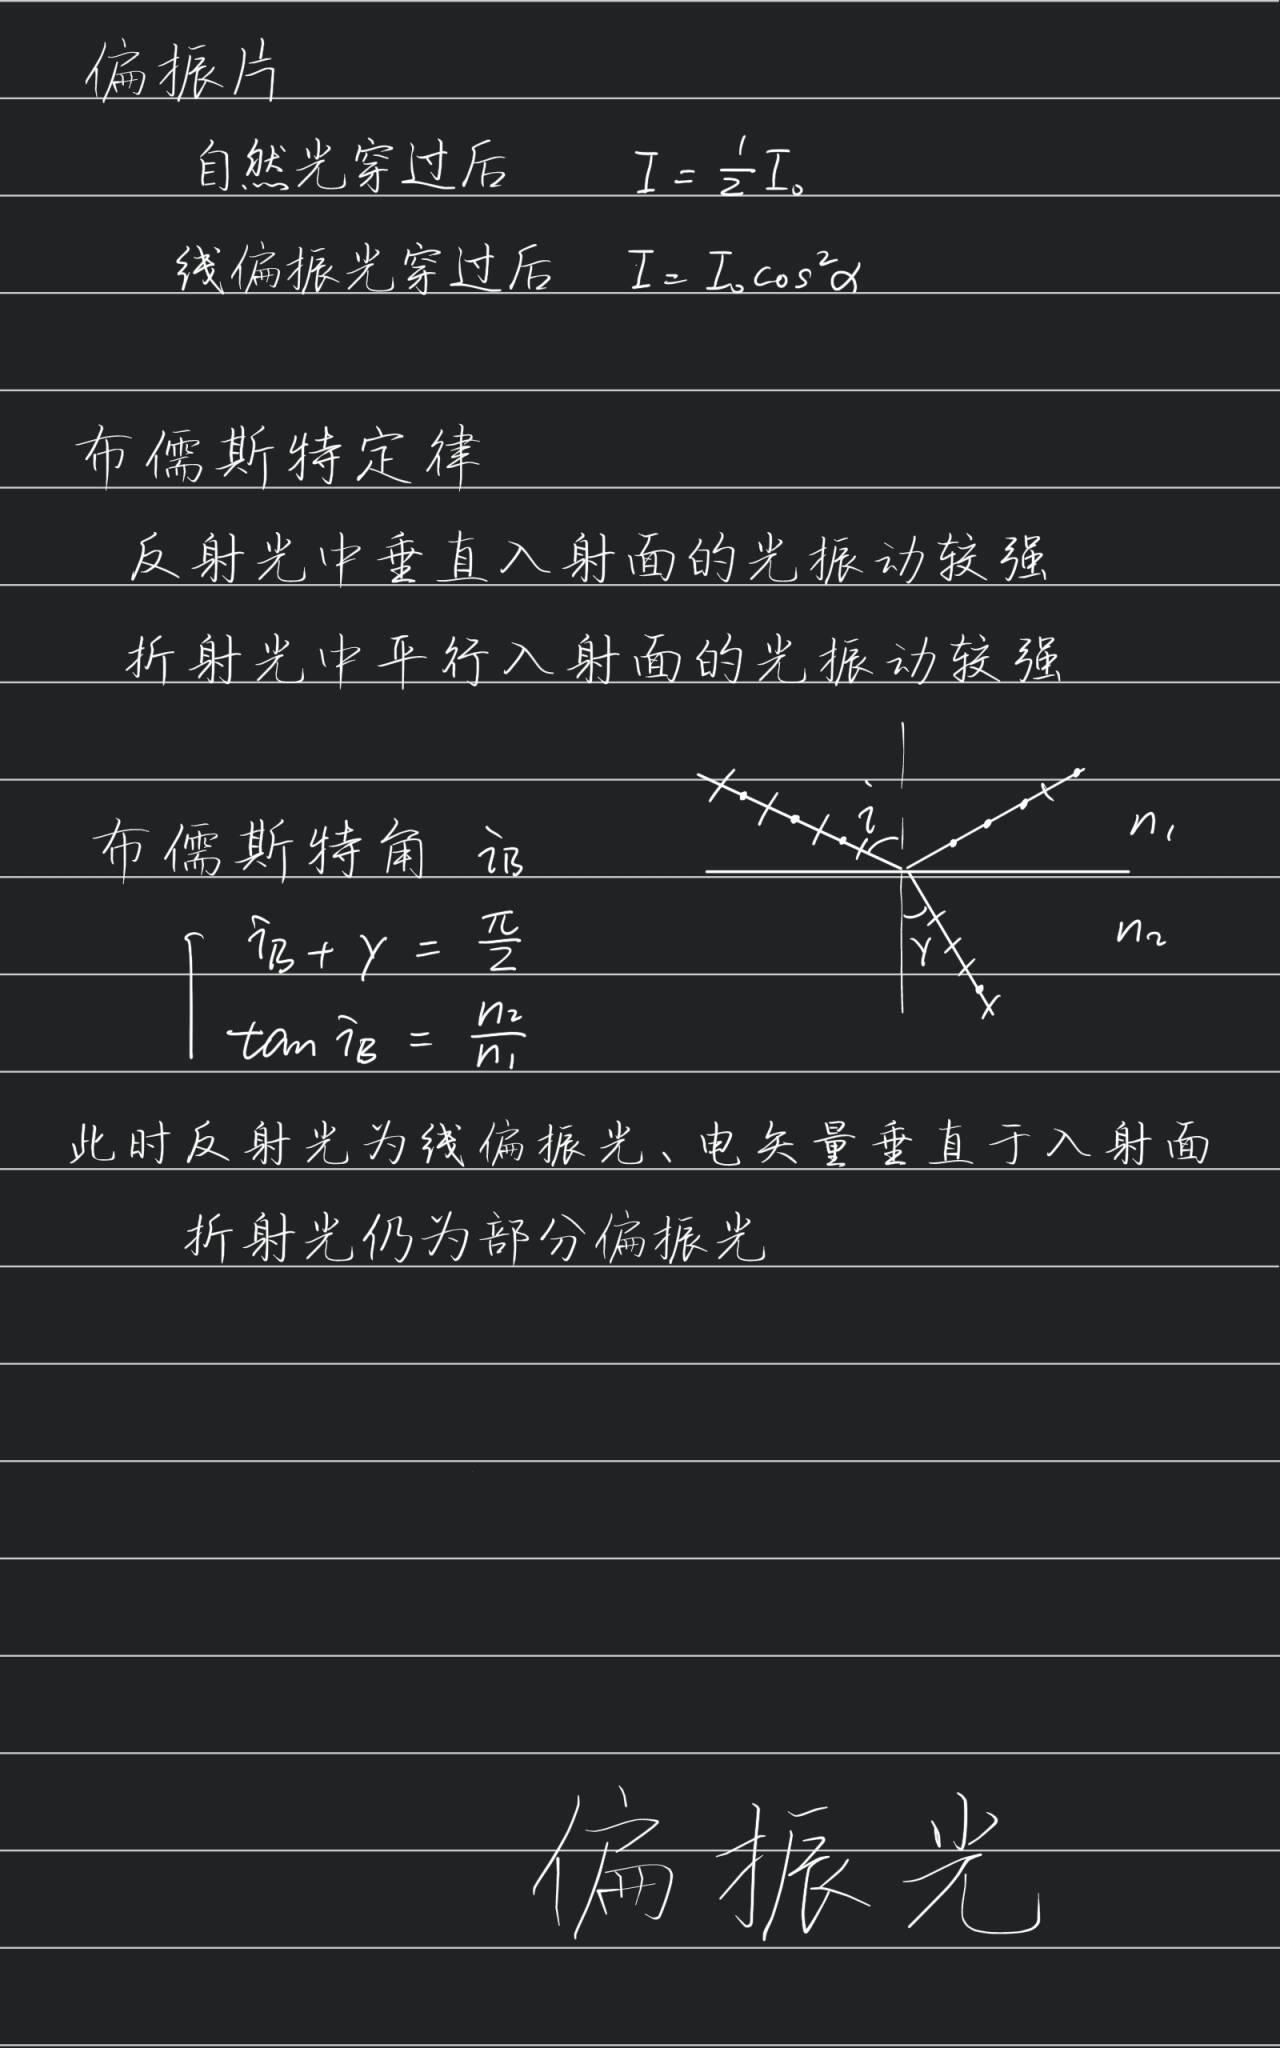 偏振片
自然光穿过后 I = 1/2 I₀
线偏振光穿过后 I = I₀cos²α
布儒斯特定律
反射光中垂直入射面的光振动较强
折射光中平行入射面的光振动较强
i
n₁
布儒斯特角 iB
γ
n₂
iB + γ = π/2
tan iB = n₂/n₁
此时反射光为线偏振光、电矢量垂直于入射面
折射光仍为部分偏振光
偏振光